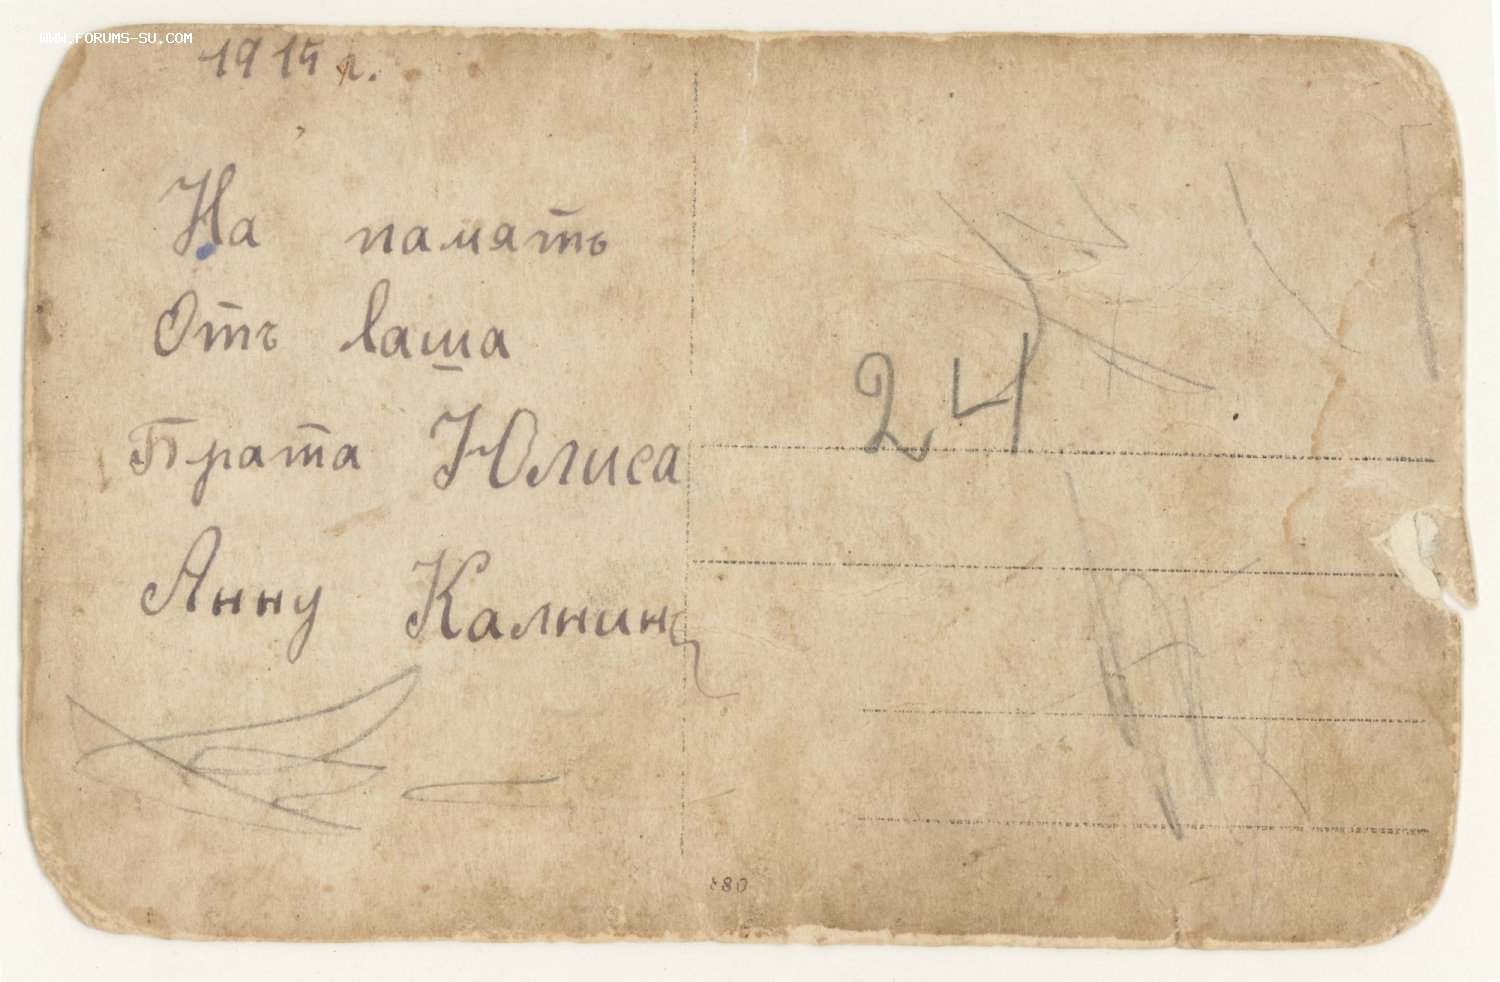 WWW.FORUMS-SU.COM
1915 г.
На память
Отъ ваша
Брата Юлиса
Анну Калнинъ
24